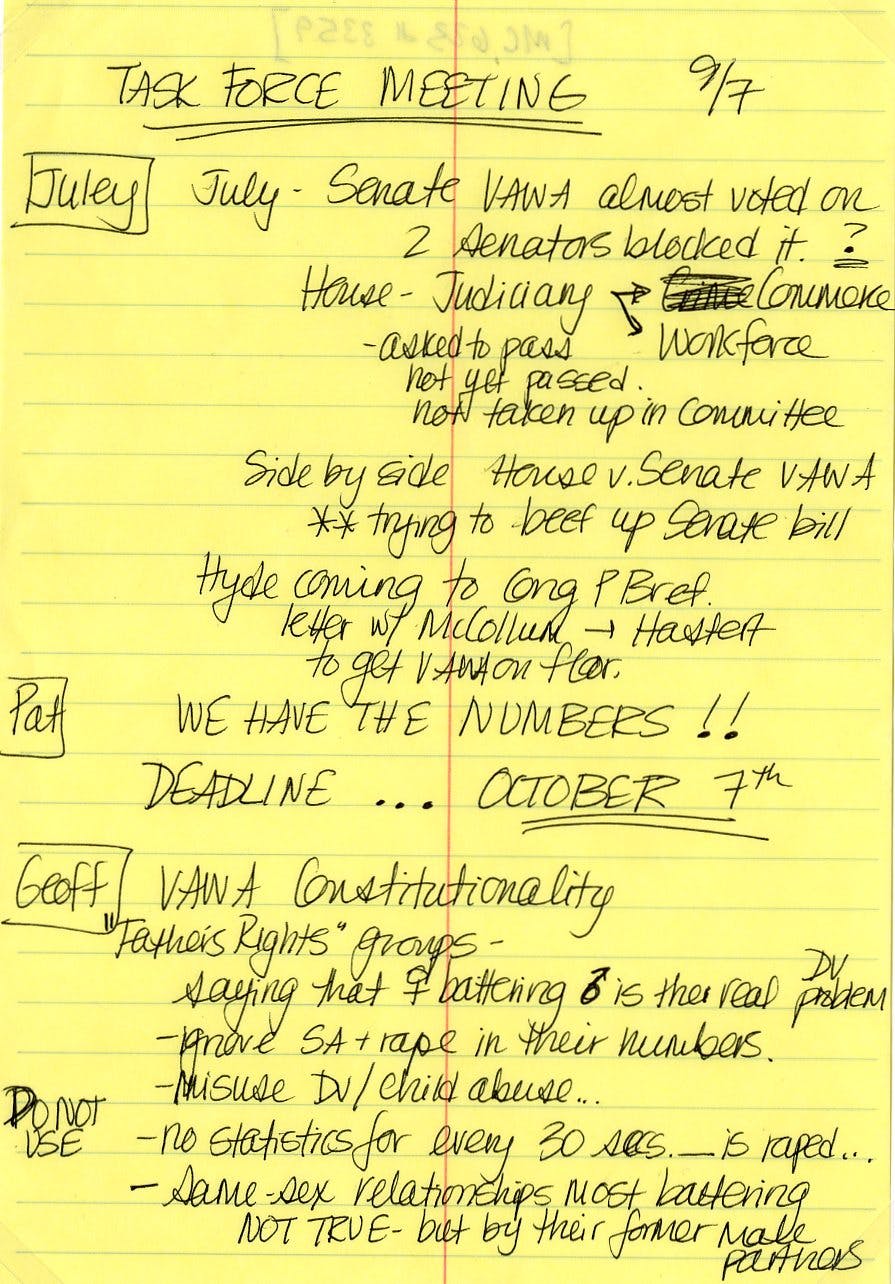 [MC 633 # 3359]
TASK FORCE MEETING 9/7
Juley July - Senate VAWA almost voted on
2 senators blocked it. ?
House - Judiciary → Commerce
- asked to pass Workforce
not yet passed.
not taken up in Committee
Side by side House v. Senate VAWA
** trying to beef up Senate bill
Hyde coming to Cong P Bref.
letter w/ McCollum → Hastert
to get VAWA on floor.
Pat WE HAVE THE NUMBERS !!
DEADLINE ... OCTOBER 7th
Geoff VAWA Constitutionality
"Father's Rights" groups -
saying that ♀ battering ♂ is the real DV problem
- ignore SA + rape in their numbers.
- Misuse DV / child abuse...
DO NOT USE - no statistics for every 30 secs. __ is raped...
- same-sex relationships most battering
NOT TRUE - but by their former male
partners